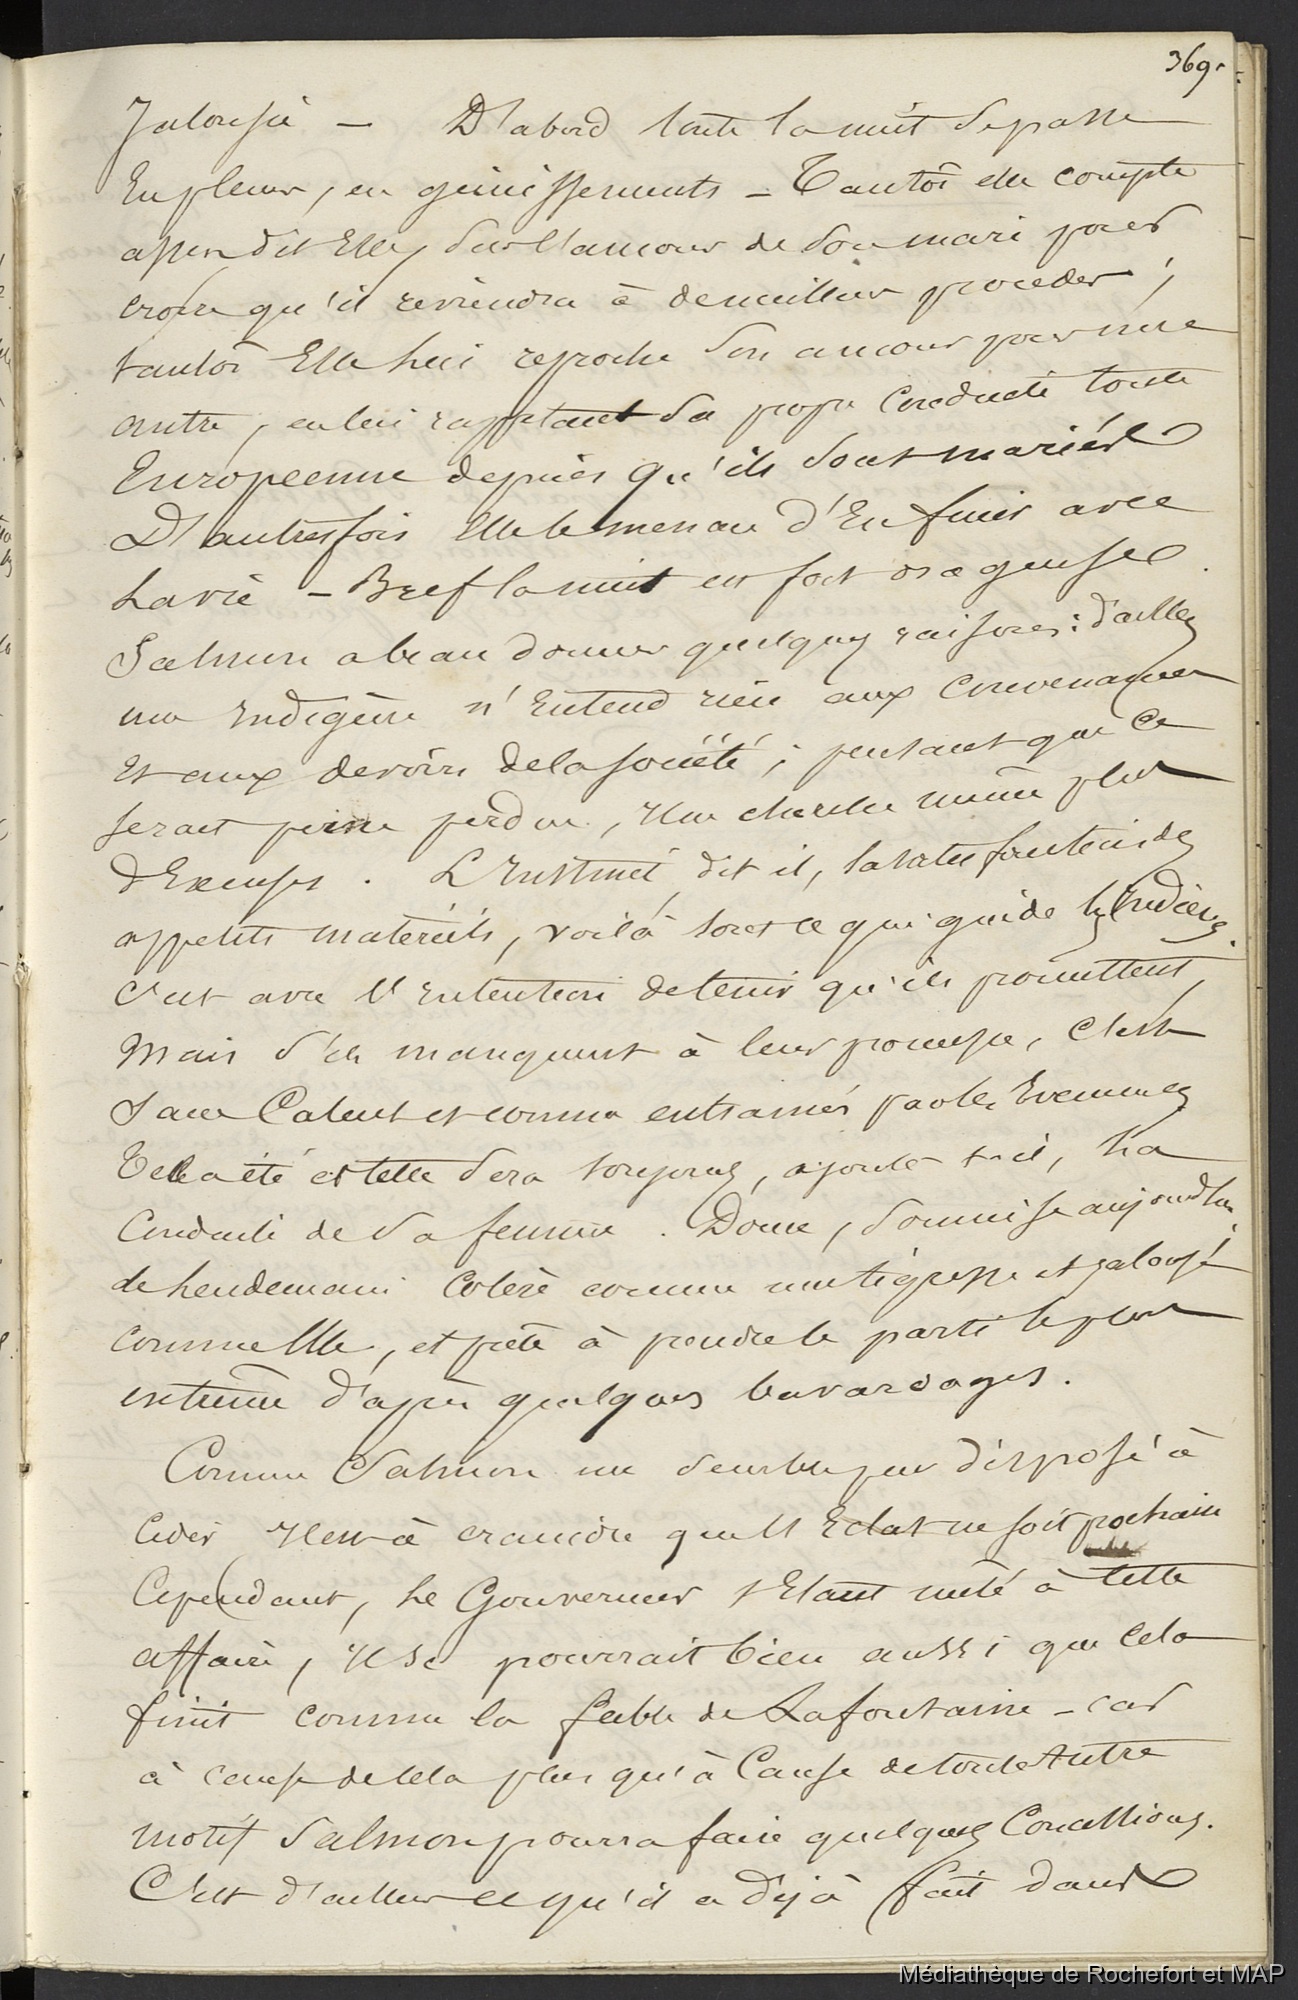 369.
Jalousie — D'abord toute la nuit se passe
En pleurs, en gémissements — Tantôt elle compte
assez dit Elle, sur l'amour de son mari pour
croire qu'il reviendra à de meilleurs procédés ;
tantôt Elle lui reproche son amour pour une
autre, en lui rappelant sa propre conduite toute
Européenne depuis qu'ils sont mariés
D'autres fois Elle le menace d'En finir avec
la vie — Bref la nuit est fort orageuse.
Salmon a beau donner quelques raisons : d'ailleurs
une Indigène n'Entend rien aux Convenances
Et aux devoirs de la société ; pensant que ce
serait peine perdue, Il ne cherche même plus
d'Excuses. L'Instinct, dit il, la satisfaction des
appetits matériels, voilà tout ce qui guide les Indiens.
C'est avec l'Intention de tenir qu'ils promettent,
Mais s'ils manquent à leur promesse, C'est
sans Calcul et comme entrainés par les Evenemens
Telle a été et telle sera toujours, ajoute t-il, la
Conduite de sa femme. Douce, soumise aujourd'hui,
le lendemain Colère comme une tigresse et jalouse
comme Elle, et prête à prendre le parti le plus
extrême d'après quelques bavardages.
Comme Salmon me semble peu disposé à
Céder Il est à craindre que l'Eclat ne soit prochain
Cependant, Le Gouverneur s'Etant mêlé à cette
affaire, Il se pourrait bien aussi que cela
finit comme la fable de Lafontaine — car
à cause de cela plus qu'à Cause de toute Autre
motif Salmon pourra faire quelques Concessions.
C'est d'ailleurs ce qu'il a déjà fait dans
Médiathèque de Rochefort et MAP